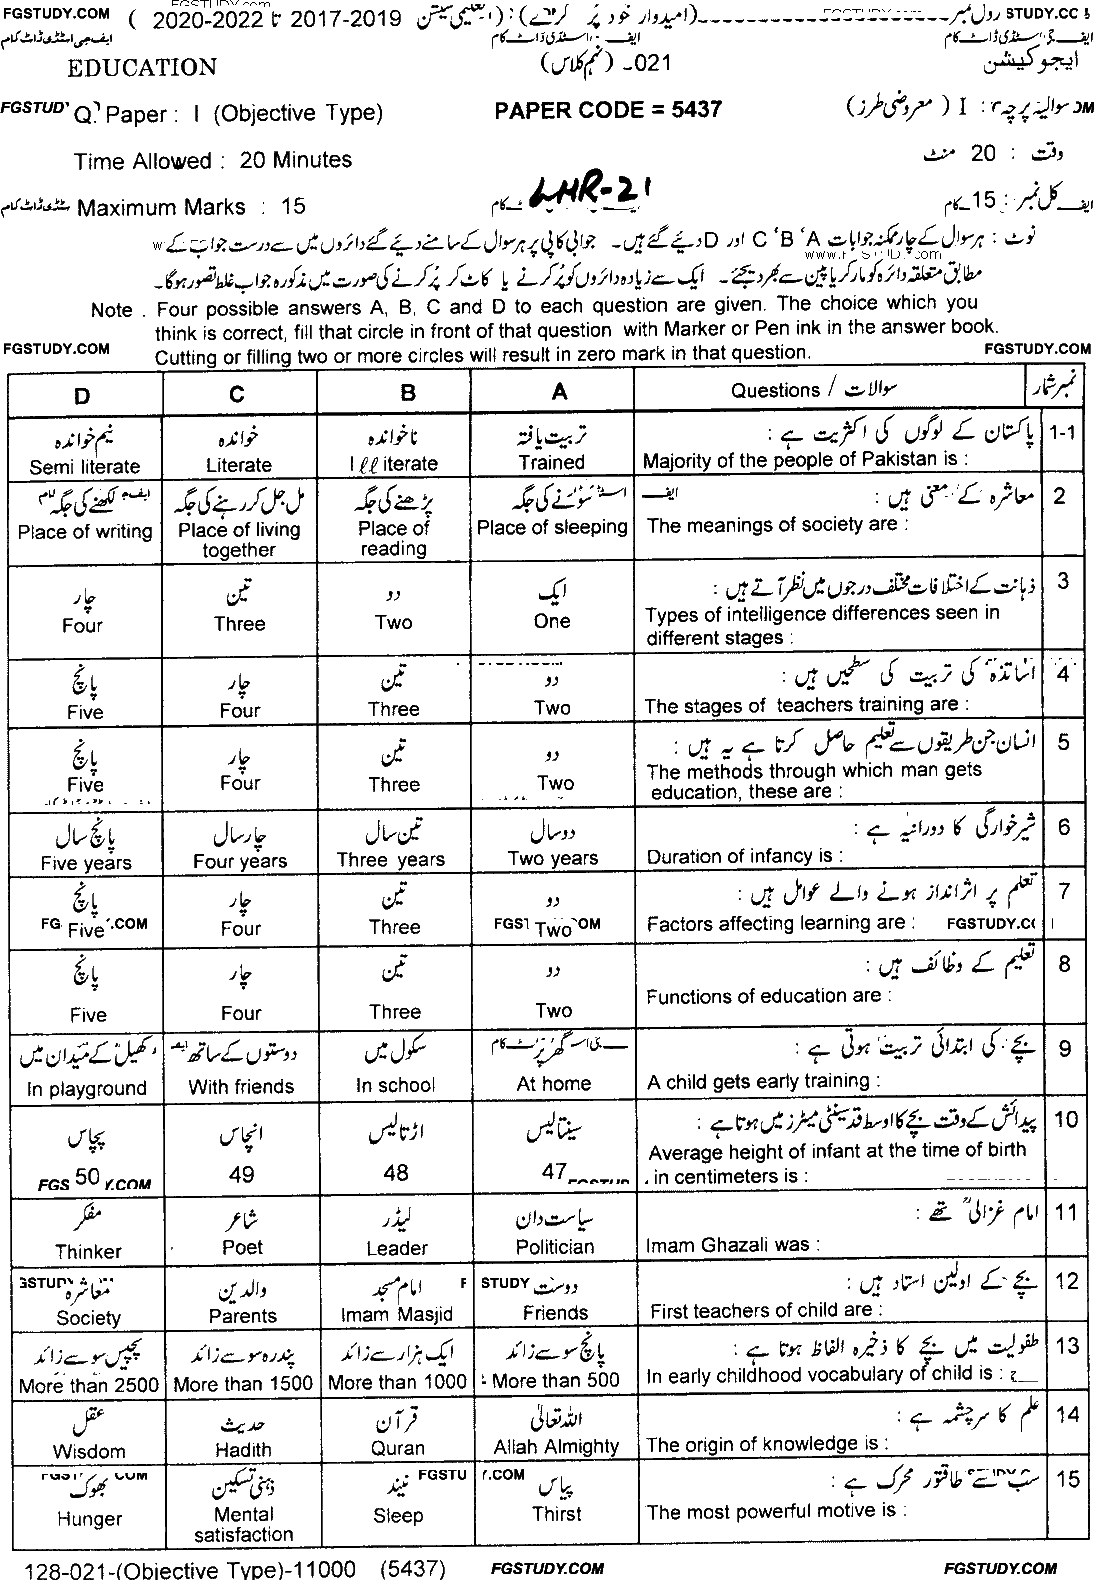 FGSTUDY.COM ( 2020-2022 تا 2017-2019 تعلیمی سیشن ) : (امیدوار خود پُر کرے) رول نمبر STUDY.CC
EDUCATION 021- (نہم کلاس) ایجوکیشن
Q. Paper : I (Objective Type) PAPER CODE = 5437 سوالیہ پرچہ : I ( معروضی طرز )
Time Allowed : 20 Minutes وقت : 20 منٹ
Maximum Marks : 15 LHR-21 کل نمبر : 15
نوٹ : ہر سوال کے چار ممکنہ جوابات A ‘B ‘C اور D دیئے گئے ہیں۔ جوابی کاپی پر ہر سوال کے سامنے دیئے گئے دائروں میں سے درست جواب کے
مطابق متعلقہ دائرہ کو مارکر یا پین سے بھر دیجئے۔ ایک سے زیادہ دائروں کو پُر کرنے یا کاٹ کر پُر کرنے کی صورت میں مذکورہ جواب غلط تصور ہوگا۔
Note . Four possible answers A, B, C and D to each question are given. The choice which you
think is correct, fill that circle in front of that question with Marker or Pen ink in the answer book.
FGSTUDY.COM Cutting or filling two or more circles will result in zero mark in that question. FGSTUDY.COM
D C B A Questions / سوالات نمبر شمار
نیم خواندہ خواندہ ناخواندہ تربیت یافتہ پاکستان کے لوگوں کی اکثریت ہے : 1-1
Semi literate Literate Illiterate Trained Majority of the people of Pakistan is :
لکھنے کی جگہ مل جل کر رہنے کی جگہ پڑھنے کی جگہ سونے کی جگہ معاشرہ کے معنی ہیں : 2
Place of writing Place of living together Place of reading Place of sleeping The meanings of society are :
چار تین دو ایک ذہانت کے اختلافات مختلف درجوں میں نظر آتے ہیں : 3
Four Three Two One Types of intelligence differences seen in
different stages :
پانچ چار تین دو اساتذہ کی تربیت کی سطحیں ہیں : 4
Five Four Three Two The stages of teachers training are :
پانچ چار تین دو انسان جن طریقوں سے تعلیم حاصل کرتا ہے یہ ہیں : 5
Five Four Three Two The methods through which man gets
education, these are :
پانچ سال چار سال تین سال دو سال شیرخوارگی کا دورانیہ ہے : 6
Five years Four years Three years Two years Duration of infancy is :
پانچ چار تین دو تعلم پر اثرانداز ہونے والے عوامل ہیں : 7
Five Four Three Two Factors affecting learning are :
پانچ چار تین دو تعلیم کے وظائف ہیں : 8
Five Four Three Two Functions of education are :
کھیل کے میدان میں دوستوں کے ساتھ سکول میں گھر پر بچے کی ابتدائی تربیت ہوتی ہے : 9
In playground With friends In school At home A child gets early training :
پچاس انچاس اڑتالیس سینتالیس پیدائش کے وقت بچے کا اوسط قد سینٹی میٹرز میں ہوتا ہے : 10
50 49 48 47 Average height of infant at the time of birth
in centimeters is :
مفکر شاعر لیڈر سیاست دان امام غزالیؒ تھے : 11
Thinker Poet Leader Politician Imam Ghazali was :
معاشرہ والدین امام مسجد دوست بچے کے اولین استاد ہیں : 12
Society Parents Imam Masjid Friends First teachers of child are :
پچیس سو سے زائد پندرہ سو سے زائد ایک ہزار سے زائد پانچ سو سے زائد طفولیت میں بچے کا ذخیرہ الفاظ ہوتا ہے : 13
More than 2500 More than 1500 More than 1000 More than 500 In early childhood vocabulary of child is :
عقل حدیث قرآن اللہ تعالیٰ علم کا سرچشمہ ہے : 14
Wisdom Hadith Quran Allah Almighty The origin of knowledge is :
بھوک ذہنی تسکین نیند پیاس سب سے طاقتور محرک ہے : 15
Hunger Mental satisfaction Sleep Thirst The most powerful motive is :
128-021-(Objective Type)-11000 (5437) FGSTUDY.COM FGSTUDY.COM